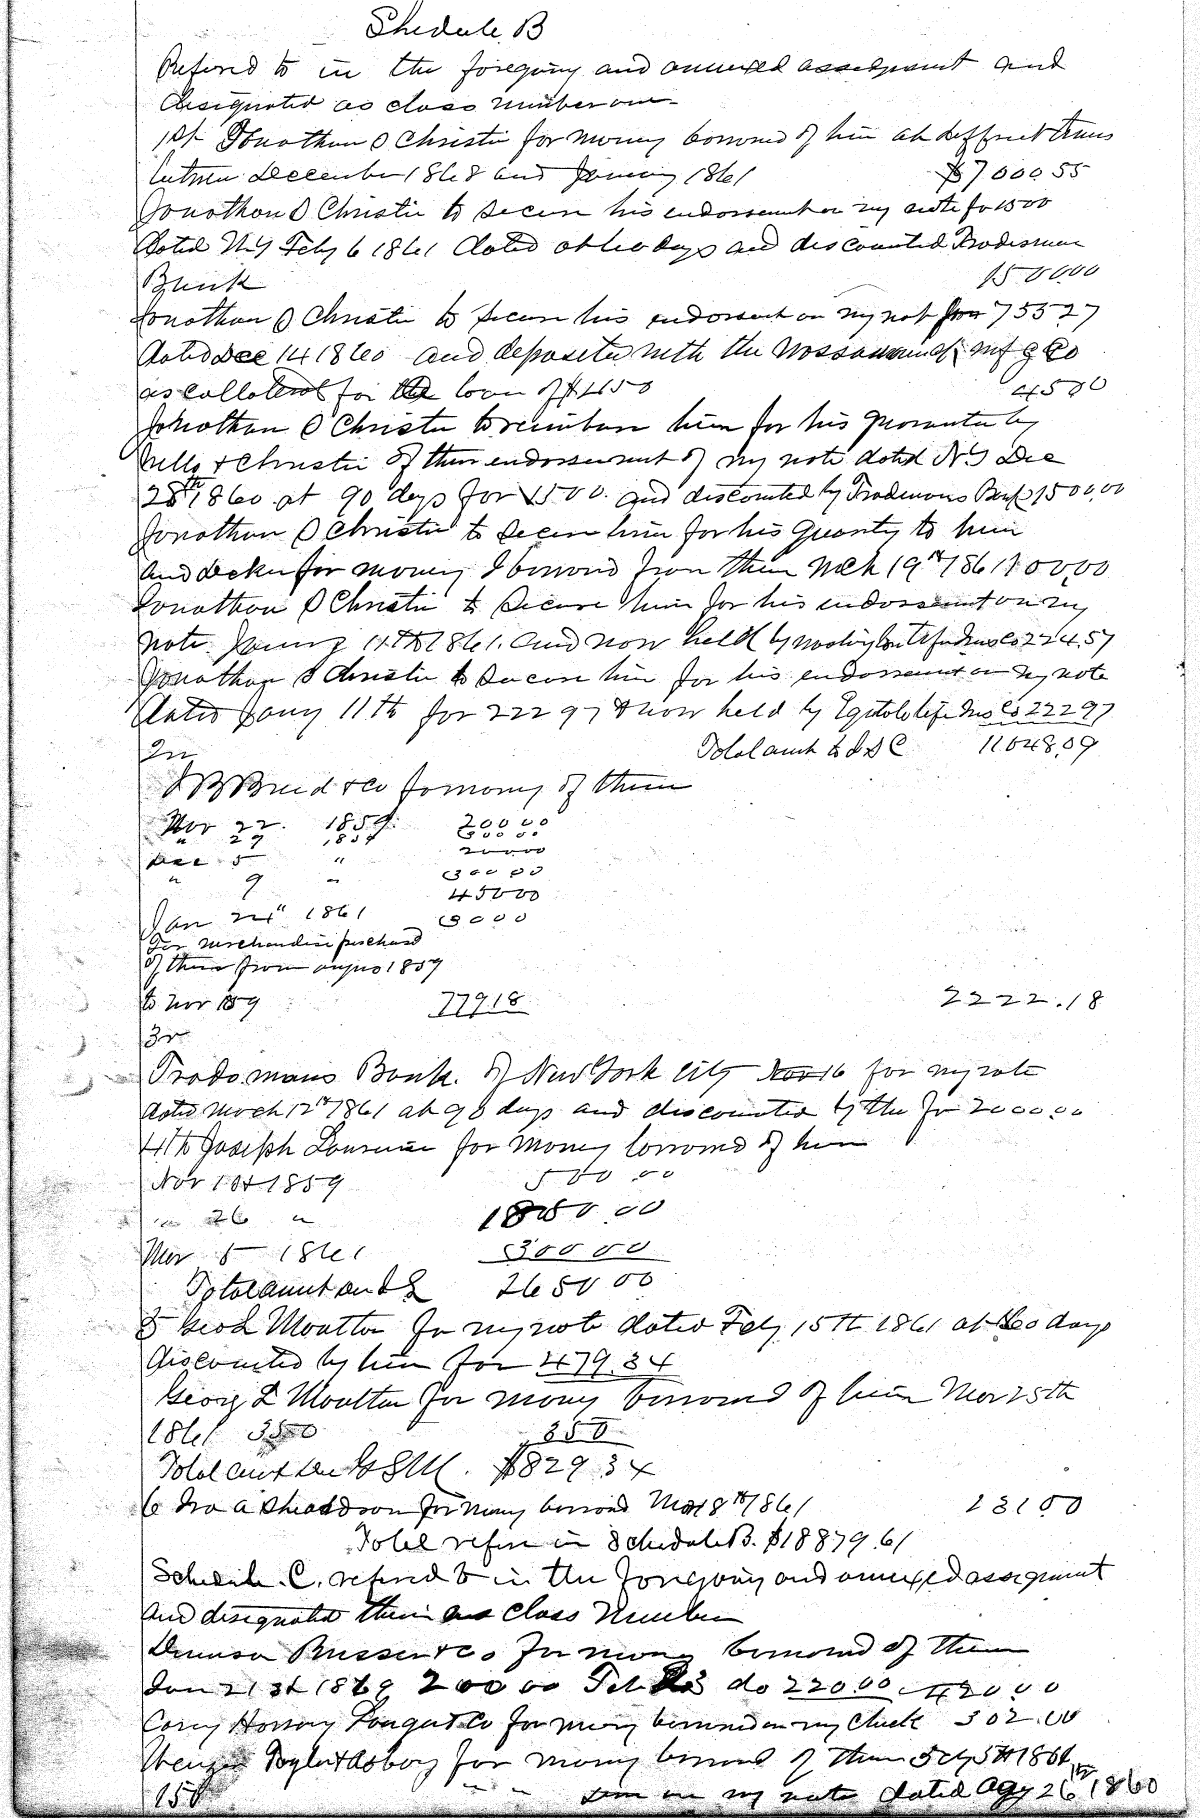 Shedule B
Refered to in the foregoing and annexed assignment and
designated as class number one
1st Jonathan D Christie for money borrowed of him at diffrent times
between December 1868 and January 1861 $7000.55
Jonathan D Christie to secure his endorsement on my note for 1500
dated NY Feby 6 1861 dated at 60 days and discounted Tradesman
Bank 1500.00
Jonathan D Christie to secure his endorsement on my not for 755 27
dated Dec 14 1860 and deposited with the mfg Co
as collateral for the loan of $450 4500
Jonathan D Christie to reimburse him for his guarantee by
Mills & Christie of their endorsement of my note dated N.Y Dec
28th 1860 at 90 days for 1500. and discounted by Trademans Bank 1500.00
Jonathan D Christie to secure him for his Guaranty to him
and decker for money I borrowed from them Mch 19th 1861 100.00
Jonathan D Christie to secure him for his endorsement on my
note January 11th 1861. and now held by Life Ins Co 224.57
Jonathan D Christie to secure him for his endorsement on my note
dated Jany 11th for 222 97 & now held by Life Ins Co 222 97
2n Total amt to J D C 11048.09
J B & Co for mony of them
Nov 22. 1859. 200 00
" 29 1859 00
Dec 5 " 200.00
" 9 " 300 00
450 00
Jan 24th 1861 00
for merchandise purchased
of them from 1859
to Nov 1859 779 18 2222.18
3r
Tradesmans Bank. of New York City Nov 16 for my note
dated March 12th 1861 at 90 days and discounted by the for 2000.00
4th Joseph for money borrowed of him
Nov 1859 500 00
" 26 " 1850.00
Mar 5 1861 300 00
Total amnt on 2650 00
5 Geo L Moulton for my note dated Feby 15th 1861 at 60 days
discounted by him for 479.34
Georg L Moulton for money borrowed of him Mar 25th
1861 350 350
Total amt due G L M. $829.34
6 Jno A for mony borrowed Mar 18th 1861 231.00
Total refere in Schedule B. $18879.61
Schedule. C. refered to in the foregoing and annexed assignment
and designated them as class Number
& Co for mony borrowed of them
Jan 21st 200 00 Feb do 220.00 420.00
& Co for mony borrowed on my check 302.00
Taylor & for mony borrowed of them Feby 5th 1861
150 " " on my note dated 26th 1860